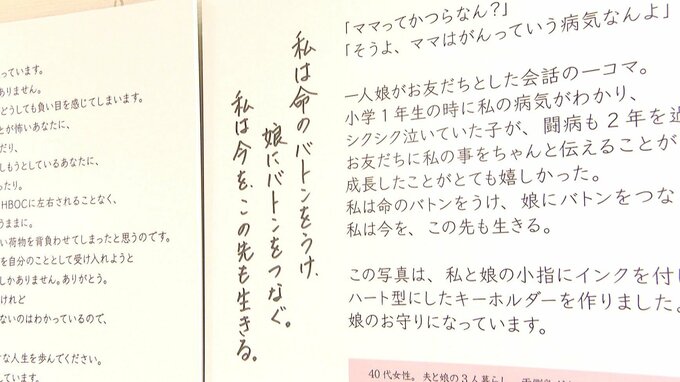 っています。
ありません。
どうしても負い目を感じてしまいます。
とが怖いあなたに、
だり、
しもうとしているあなたに、
ったり。
HBOCに左右されることなく、
うままに。
い荷物を背負わせてしまったと思うのです。
を自分のこととして受け入れようと
しかありません。ありがとう。
けれど
ないのはわかっているので、
な人生を歩んでください。
しています。
私は命のバトンをうけ、
娘にバトンをつなぐ。
私は今を、この先も生きる。
「ママってかつらなん？」
「そうよ、ママはがんっていう病気なんよ」
一人娘がお友だちとした会話の一コマ。
小学1年生の時に私の病気がわかり、
シクシク泣いていた子が、闘病も2年を過
お友だちに私の事をちゃんと伝えることが
成長したことがとても嬉しかった。
私は命のバトンをうけ、娘にバトンをつな
私は今を、この先も生きる。
この写真は、私と娘の小指にインクを付け
ハート型にしたキーホルダーを作りました。
娘のお守りになっています。
40代女性。夫と娘の3人暮らし。